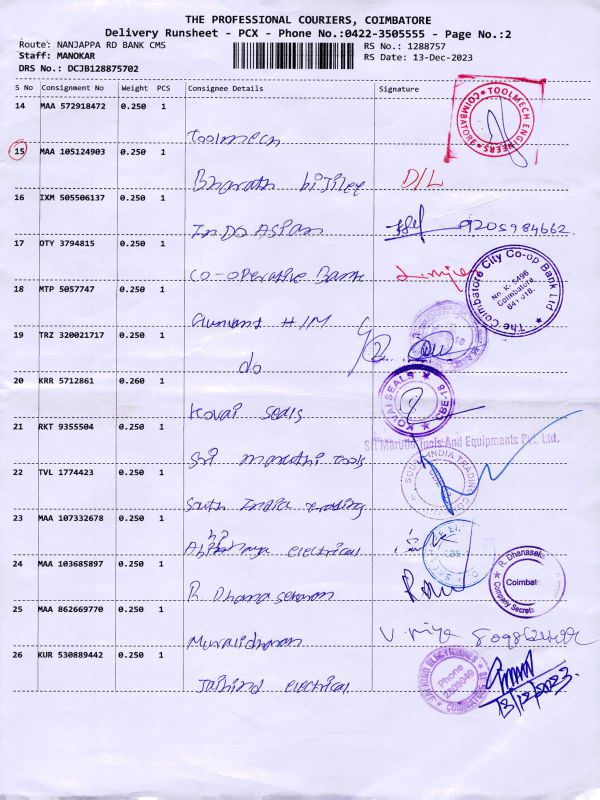 THE PROFESSIONAL COURIERS, COIMBATORE
Delivery Runsheet - PCX - Phone No.:0422-3505555 - Page No.:2
Route: NANJAPPA RD BANK CMS RS No.: 1288757
Staff: MANOKAR RS Date: 13-Dec-2023
DRS No.: DCJB128875702
S No Consignment No Weight PCS Consignee Details Signature
14 MAA 572918472 0.250 1
Toolmech
TOOLMECH ENGINEERS * COIMBATORE
15 MAA 105124903 0.250 1
Bharath bijilee D/L
16 IXM 505506137 0.250 1
Indo Asian 9205984662
17 DTY 3794815 0.250 1
Co-operative Bank
The Coimbatore City Co-op Bank Ltd
No. K. 6496
Coimbatore
641 018.
18 MTP 5057747 0.250 1
H/M
19 TRZ 320021717 0.250 1
do
20 KRR 5712861 0.260 1
Kovai Seals
KOVAI SEALS * CBE-18
21 RKT 9355504 0.250 1
Sri Maruthi Tools
Sri Maruthi Tools And Equipments Pvt. Ltd.
22 TVL 1774423 0.250 1
South India Trading
SOUTH INDIA TRADING
23 MAA 107332678 0.250 1
electrical
24 MAA 103685897 0.250 1
R. Dhanasekaran
R. Dhanasek
Coimbat
Company Secreta
25 MAA 862669770 0.250 1
Muralidharan
26 KUR 530889442 0.250 1
Jaihind electrical
JAI HIND ELECTRICALS
Phone
13/12/2023.